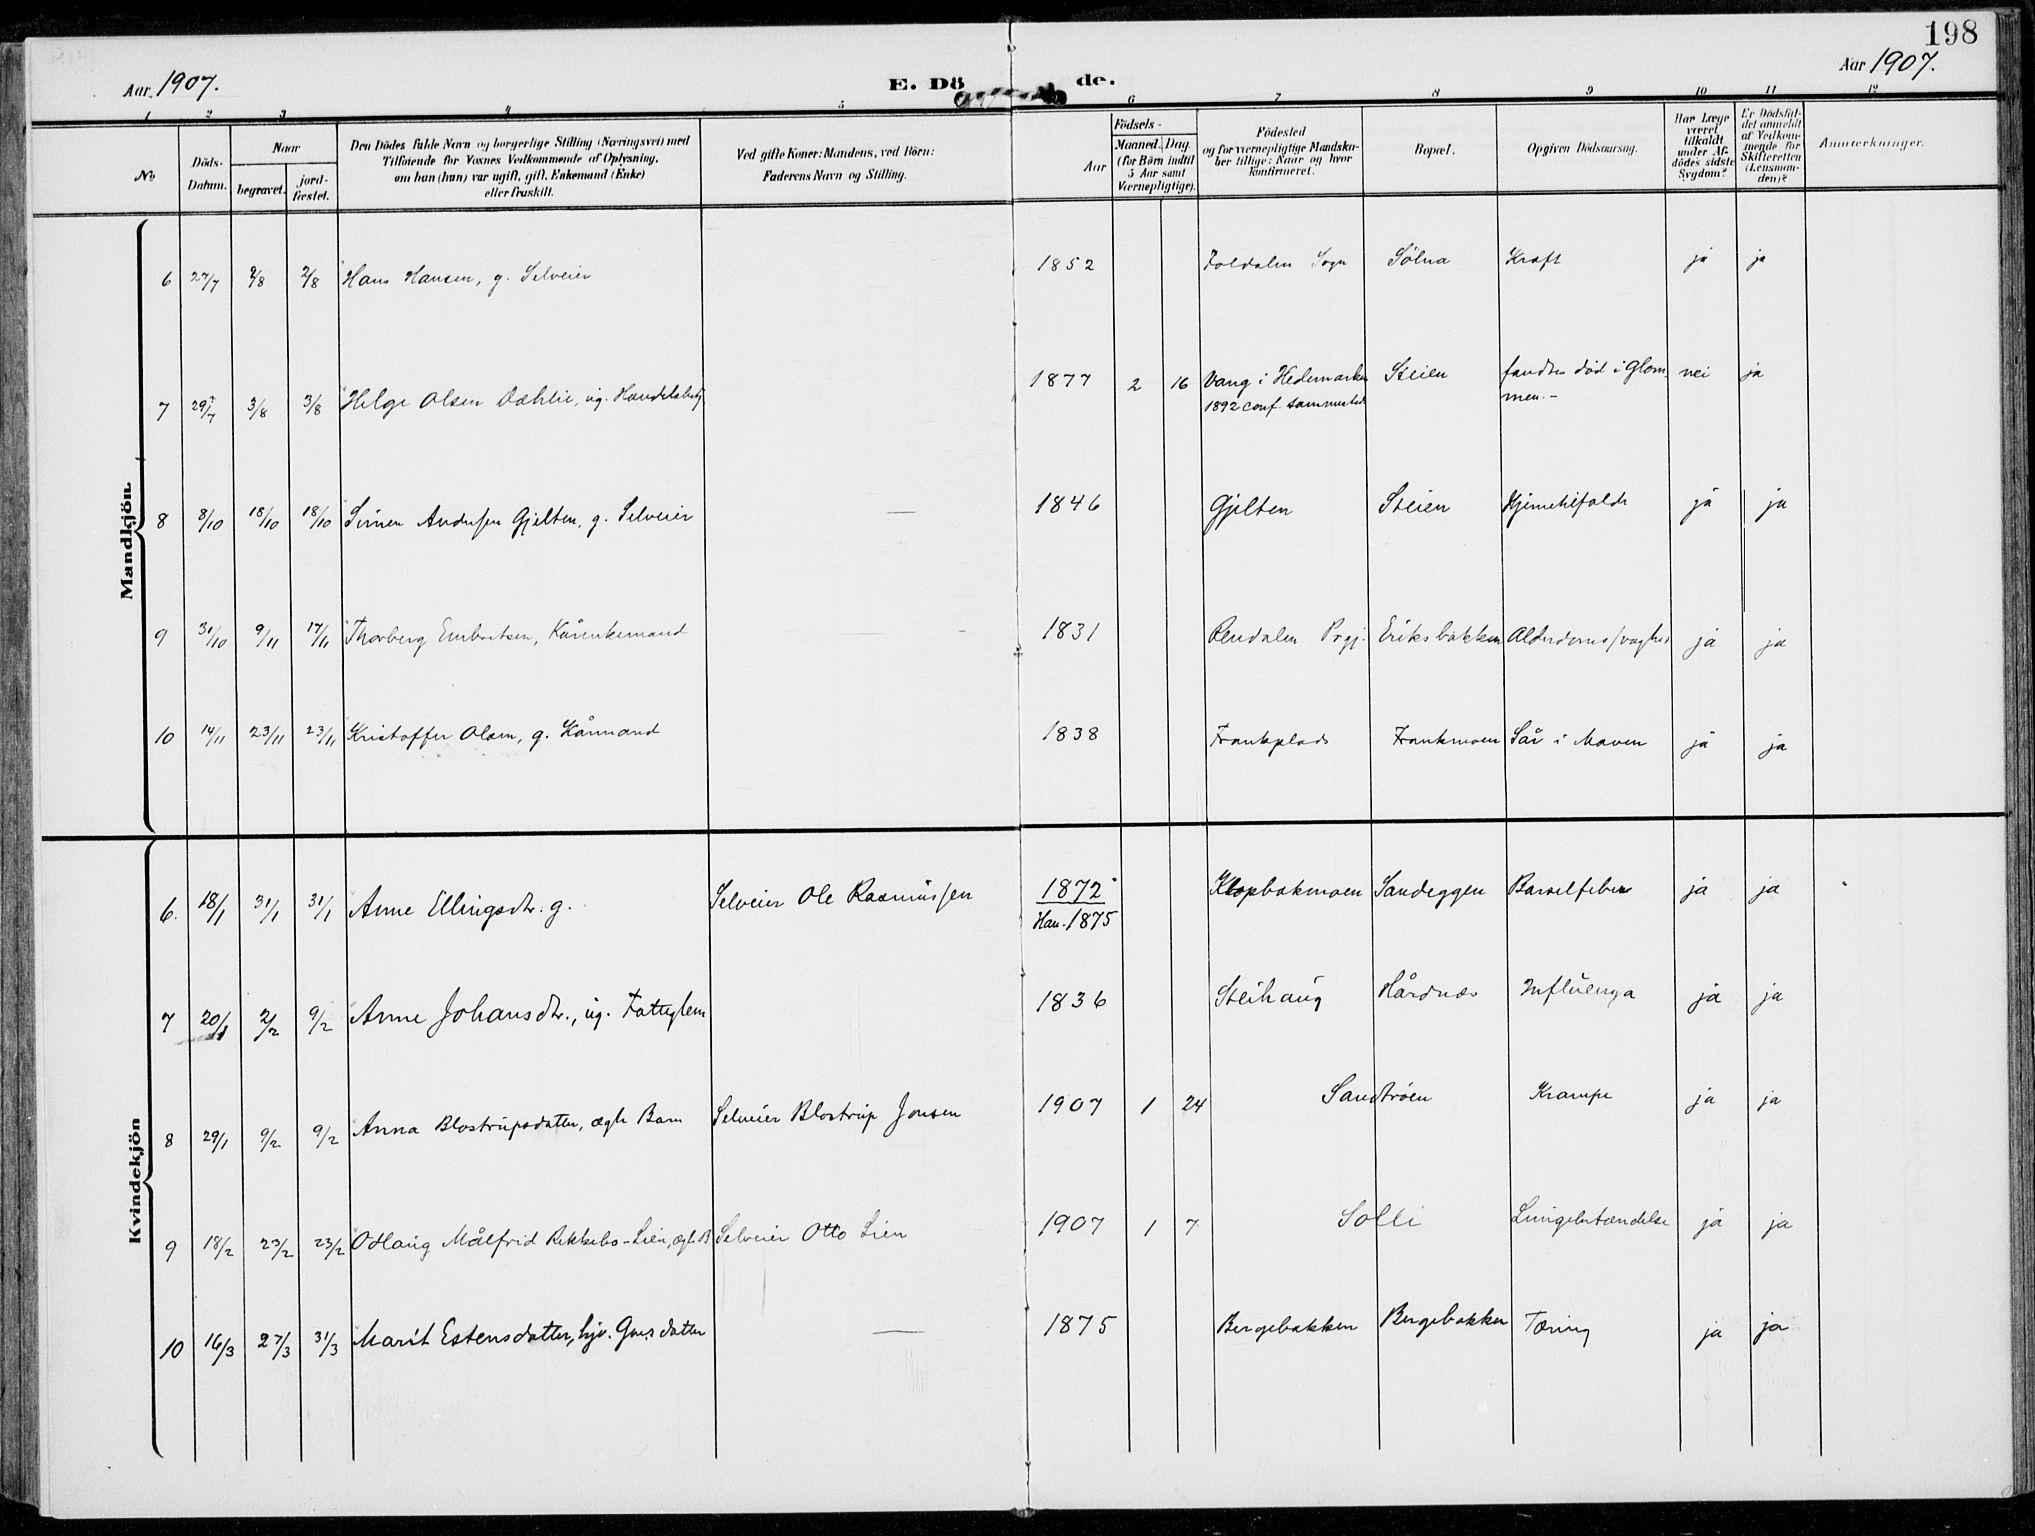 198
Aar 1907.
E. Dö de.
Aar 1907.
1 2 3 4 5 6 7 8 9 10 11 12
No
Döds-
Datum.
Naar
begravet.
jord-
fæstet.
Den Dödes fulde Navn og borgerlige Stilling (Næringsvei) med
Tilföiende for Voxnes Vedkommende af Oplysning,
om han (hun) var ugift, gift, Enkemand (Enke)
eller fraskilt.
Ved gifte Koner: Mandens, ved Börn:
Faderens Navn og Stilling.
Födsels-
Aar
Maaned.
Dag.
(for Börn indtil
5 Aar samt
Værnepligtige).
Födested
og for værnepligtige Mandska-
ber tillige: Naar og hvor
konfirmeret.
Bopæl.
Opgiven Dödsaarsag.
Har Læge
været
tilkaldt
under Af-
dödes sidste
Sygdom?
Er Dödsfal-
det anmeldt
af Vedkom-
mende for
Skifteretten
(Lensman-
den)?
Anmærkninger.
Mandkjön.
6 27/7 2/8 2/8 Hans Hansen, g. Selveier 1852 Foldalen Sogn Sölna Kræft ja ja
7 29/7 3/8 3/8 Helge Olsen Dæhlie, ug. 1877 2 16 Vang i Hedemarken Steien fandtes död i Glom- nei ja
1892 conf. sammested men. -
8 8/10 18/10 18/10 Simen Andersen Gjelten, g. Selveier — 1846 Gjelten Steien ja ja
9 31/10 9/11 17/11 Thorberg Embretsen, Kårenkemand — 1831 Rendalen Prgj. Eriksbakken Alderdomssvaghed ja ja
10 14/11 23/11 23/11 Kristoffer Olsen, g. Kårmand 1838 Frankplads Frankmoen Sår i Maven ja ja
Kvindekjön
6. 18/1 31/1 31/1 Anne Ellingsdtr. g. Selveier Ole Rasmussen 1872 Klopbakmoen Sandeggen Barselfeber ja ja
Han. 1875
7 20/1 2/2 9/2 Anne Johansdtr., ug. Fattiglem 1836 Steihaug Hårdnæs Influenza ja ja
8 29/1 9/2 9/2 Anna Blostrupsdatter, ægte Barn Selveier Blostrup Jonsen 1907 1 24 Sandtröen Krampe ja ja
9 18/2 23/2 23/2 Odlaug Målfrid Rekkebo-Lien, ægte B Selveier Otto Lien 1907 1 7 Solli Lungebetændelse ja ja
10 16/3 27/3 31/3 Marit Estensdatter, hjv. Grdsdatter — 1875 Bergebakken Bergebakken Tæring ja ja